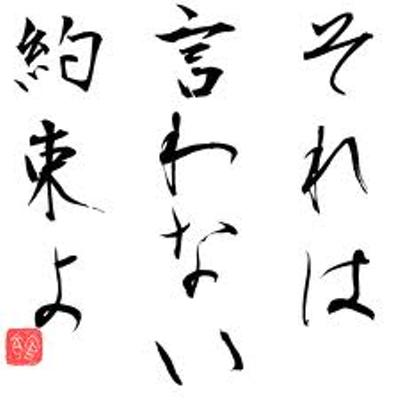 それは
言わない
約束よ